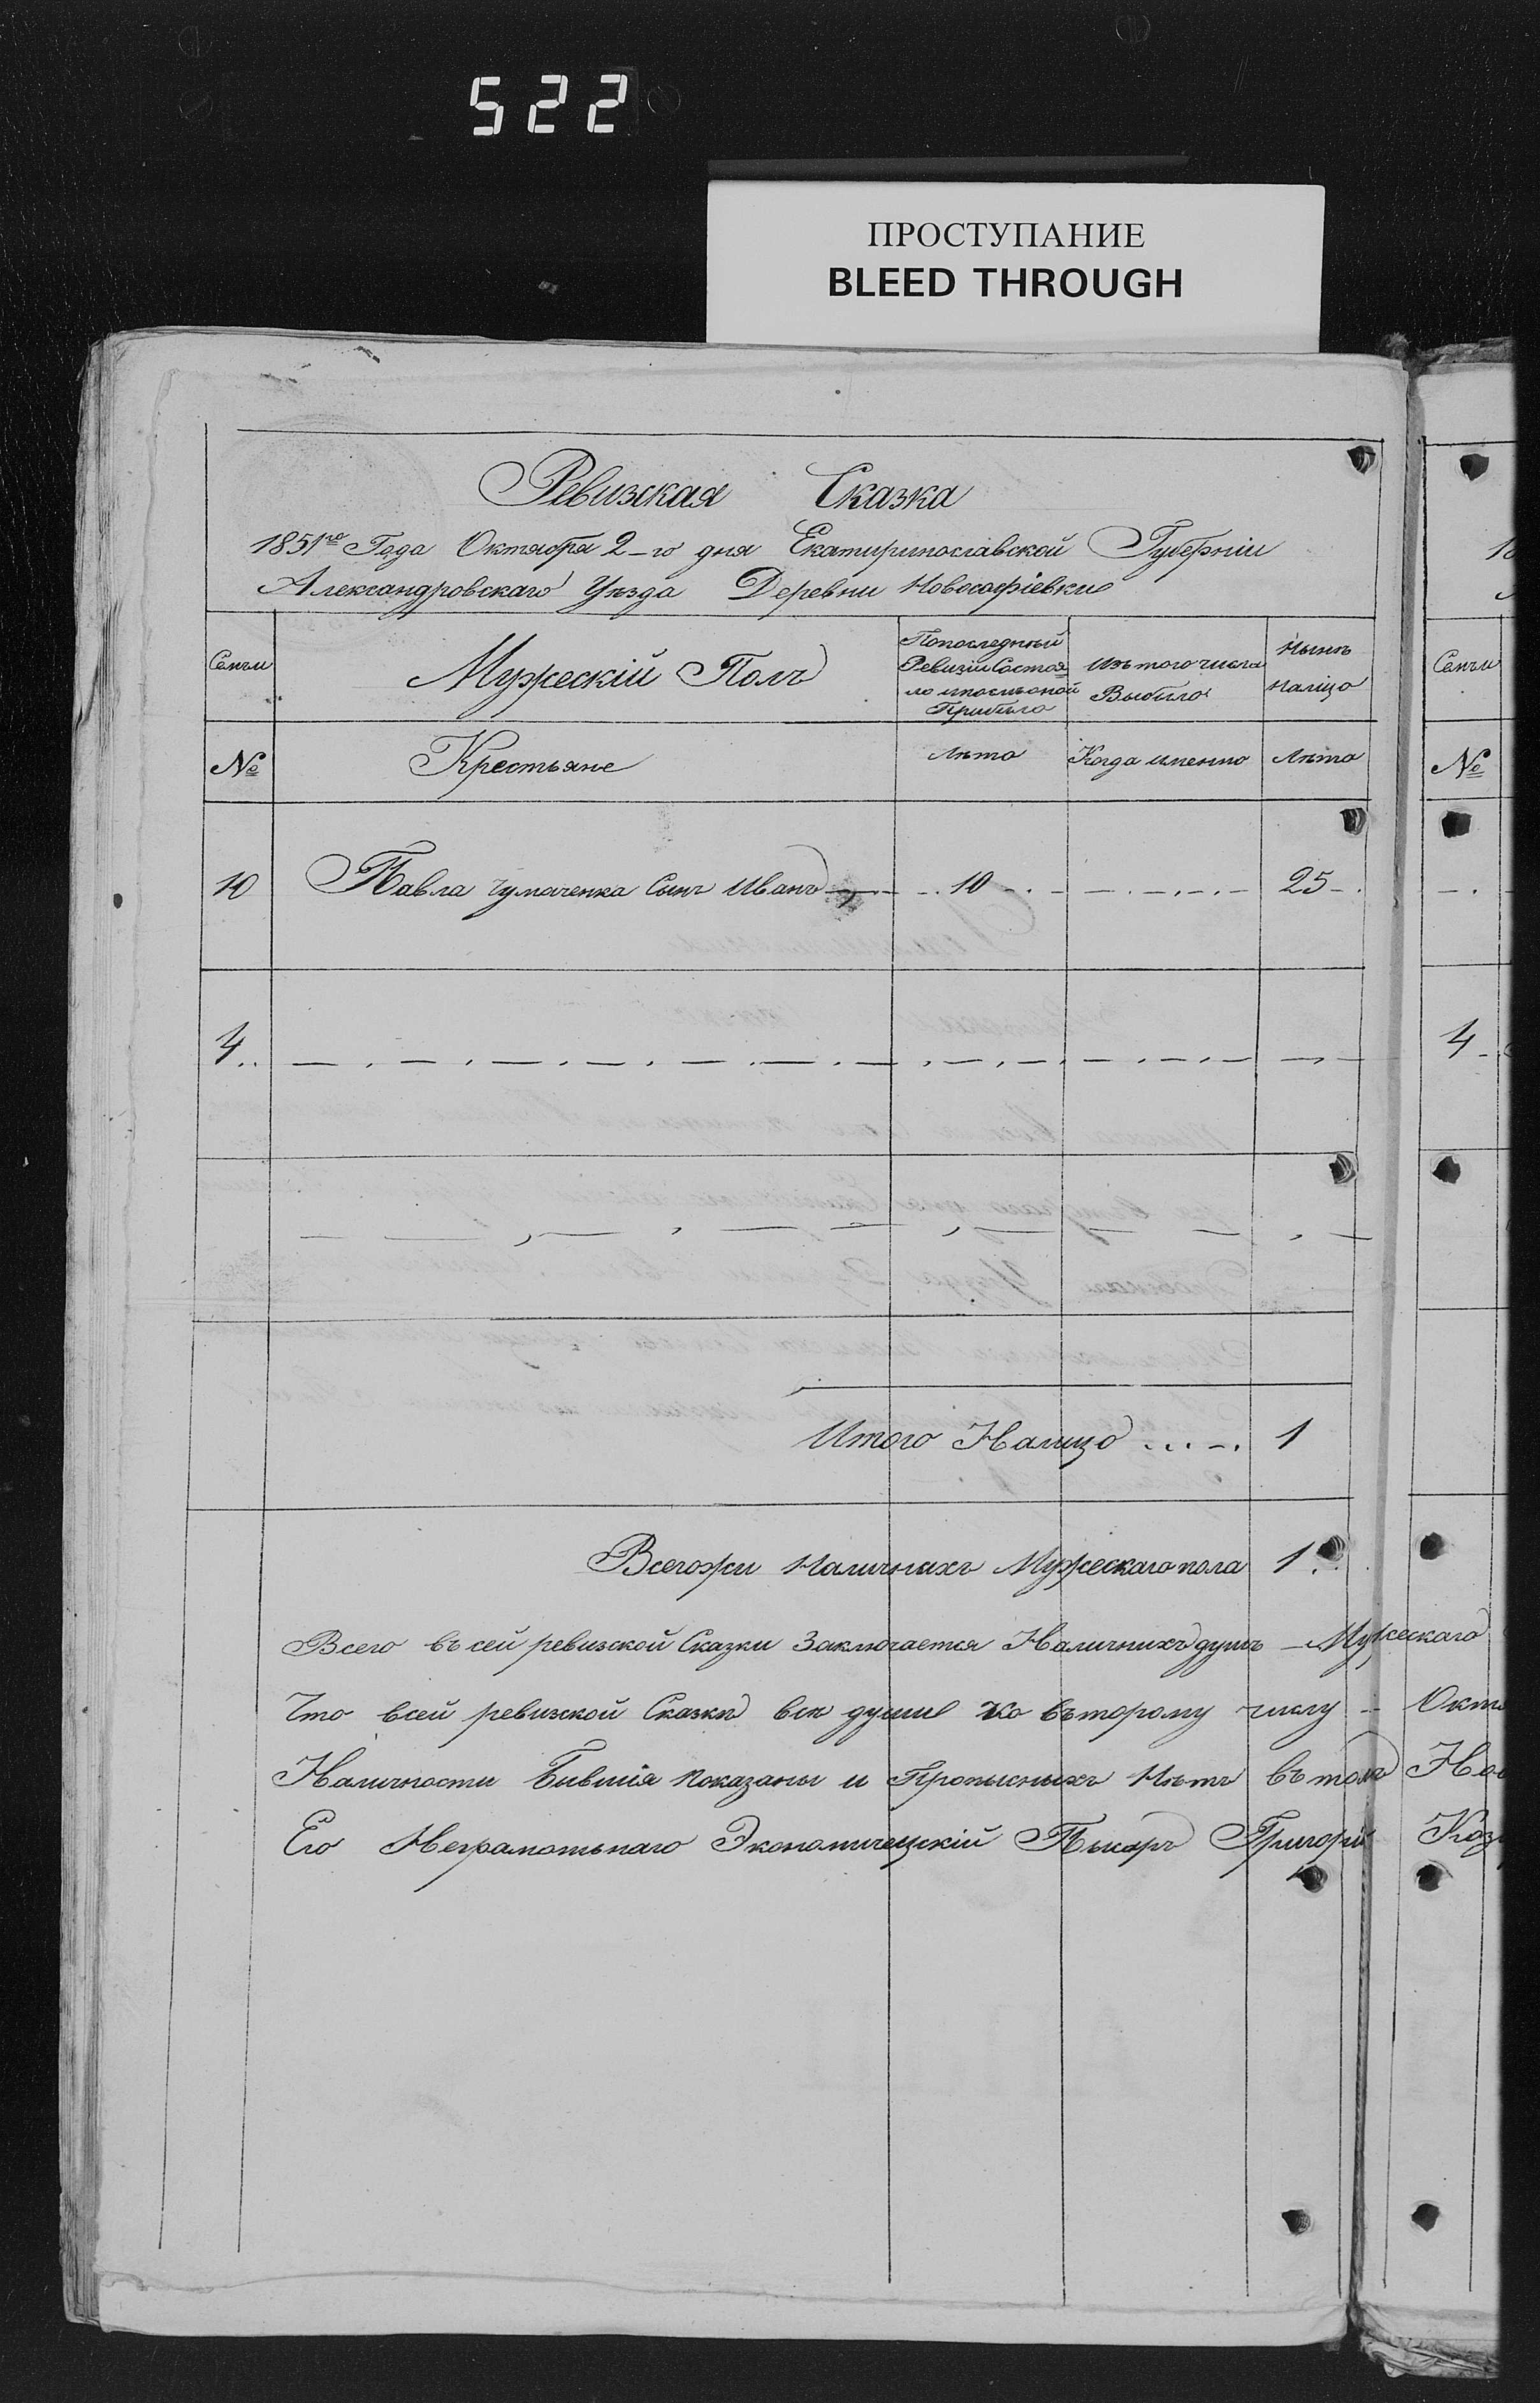 522
ПРОСТУПАНИЕ
BLEED THROUGH
Ревизская Сказка
1851го Года Октября 2-го дня Екатиринославской Губерніи
Александровскаго Уѣзда Деревни Новософіевки
Семьи
Мужескій Полъ
Попоследный Ревизіи Состоя=
ло
Прибыло
Изъ того числа
Выбыло
Нынѣ
Налицо
Семьи
№
Крестьяне
Лѣта
Когда именно
Лѣта
№
10 Павла Чумаченка Сынъ Иванъ 10 25
4
4
Итого Налицо 1
Всегожи Наличныхъ Мужескаго пола 1
Всего въ сей ревизской Сказки Заключается Наличнихъ душъ – Мужескаго
Что всей ревизкой Сказки вси души ко въторому числу – Окт
Наличности Бившія показаны и Прописныхъ Нѣтъ въ томъ
Его Неграмотьнаго Экономичецкій Писарь Григорій